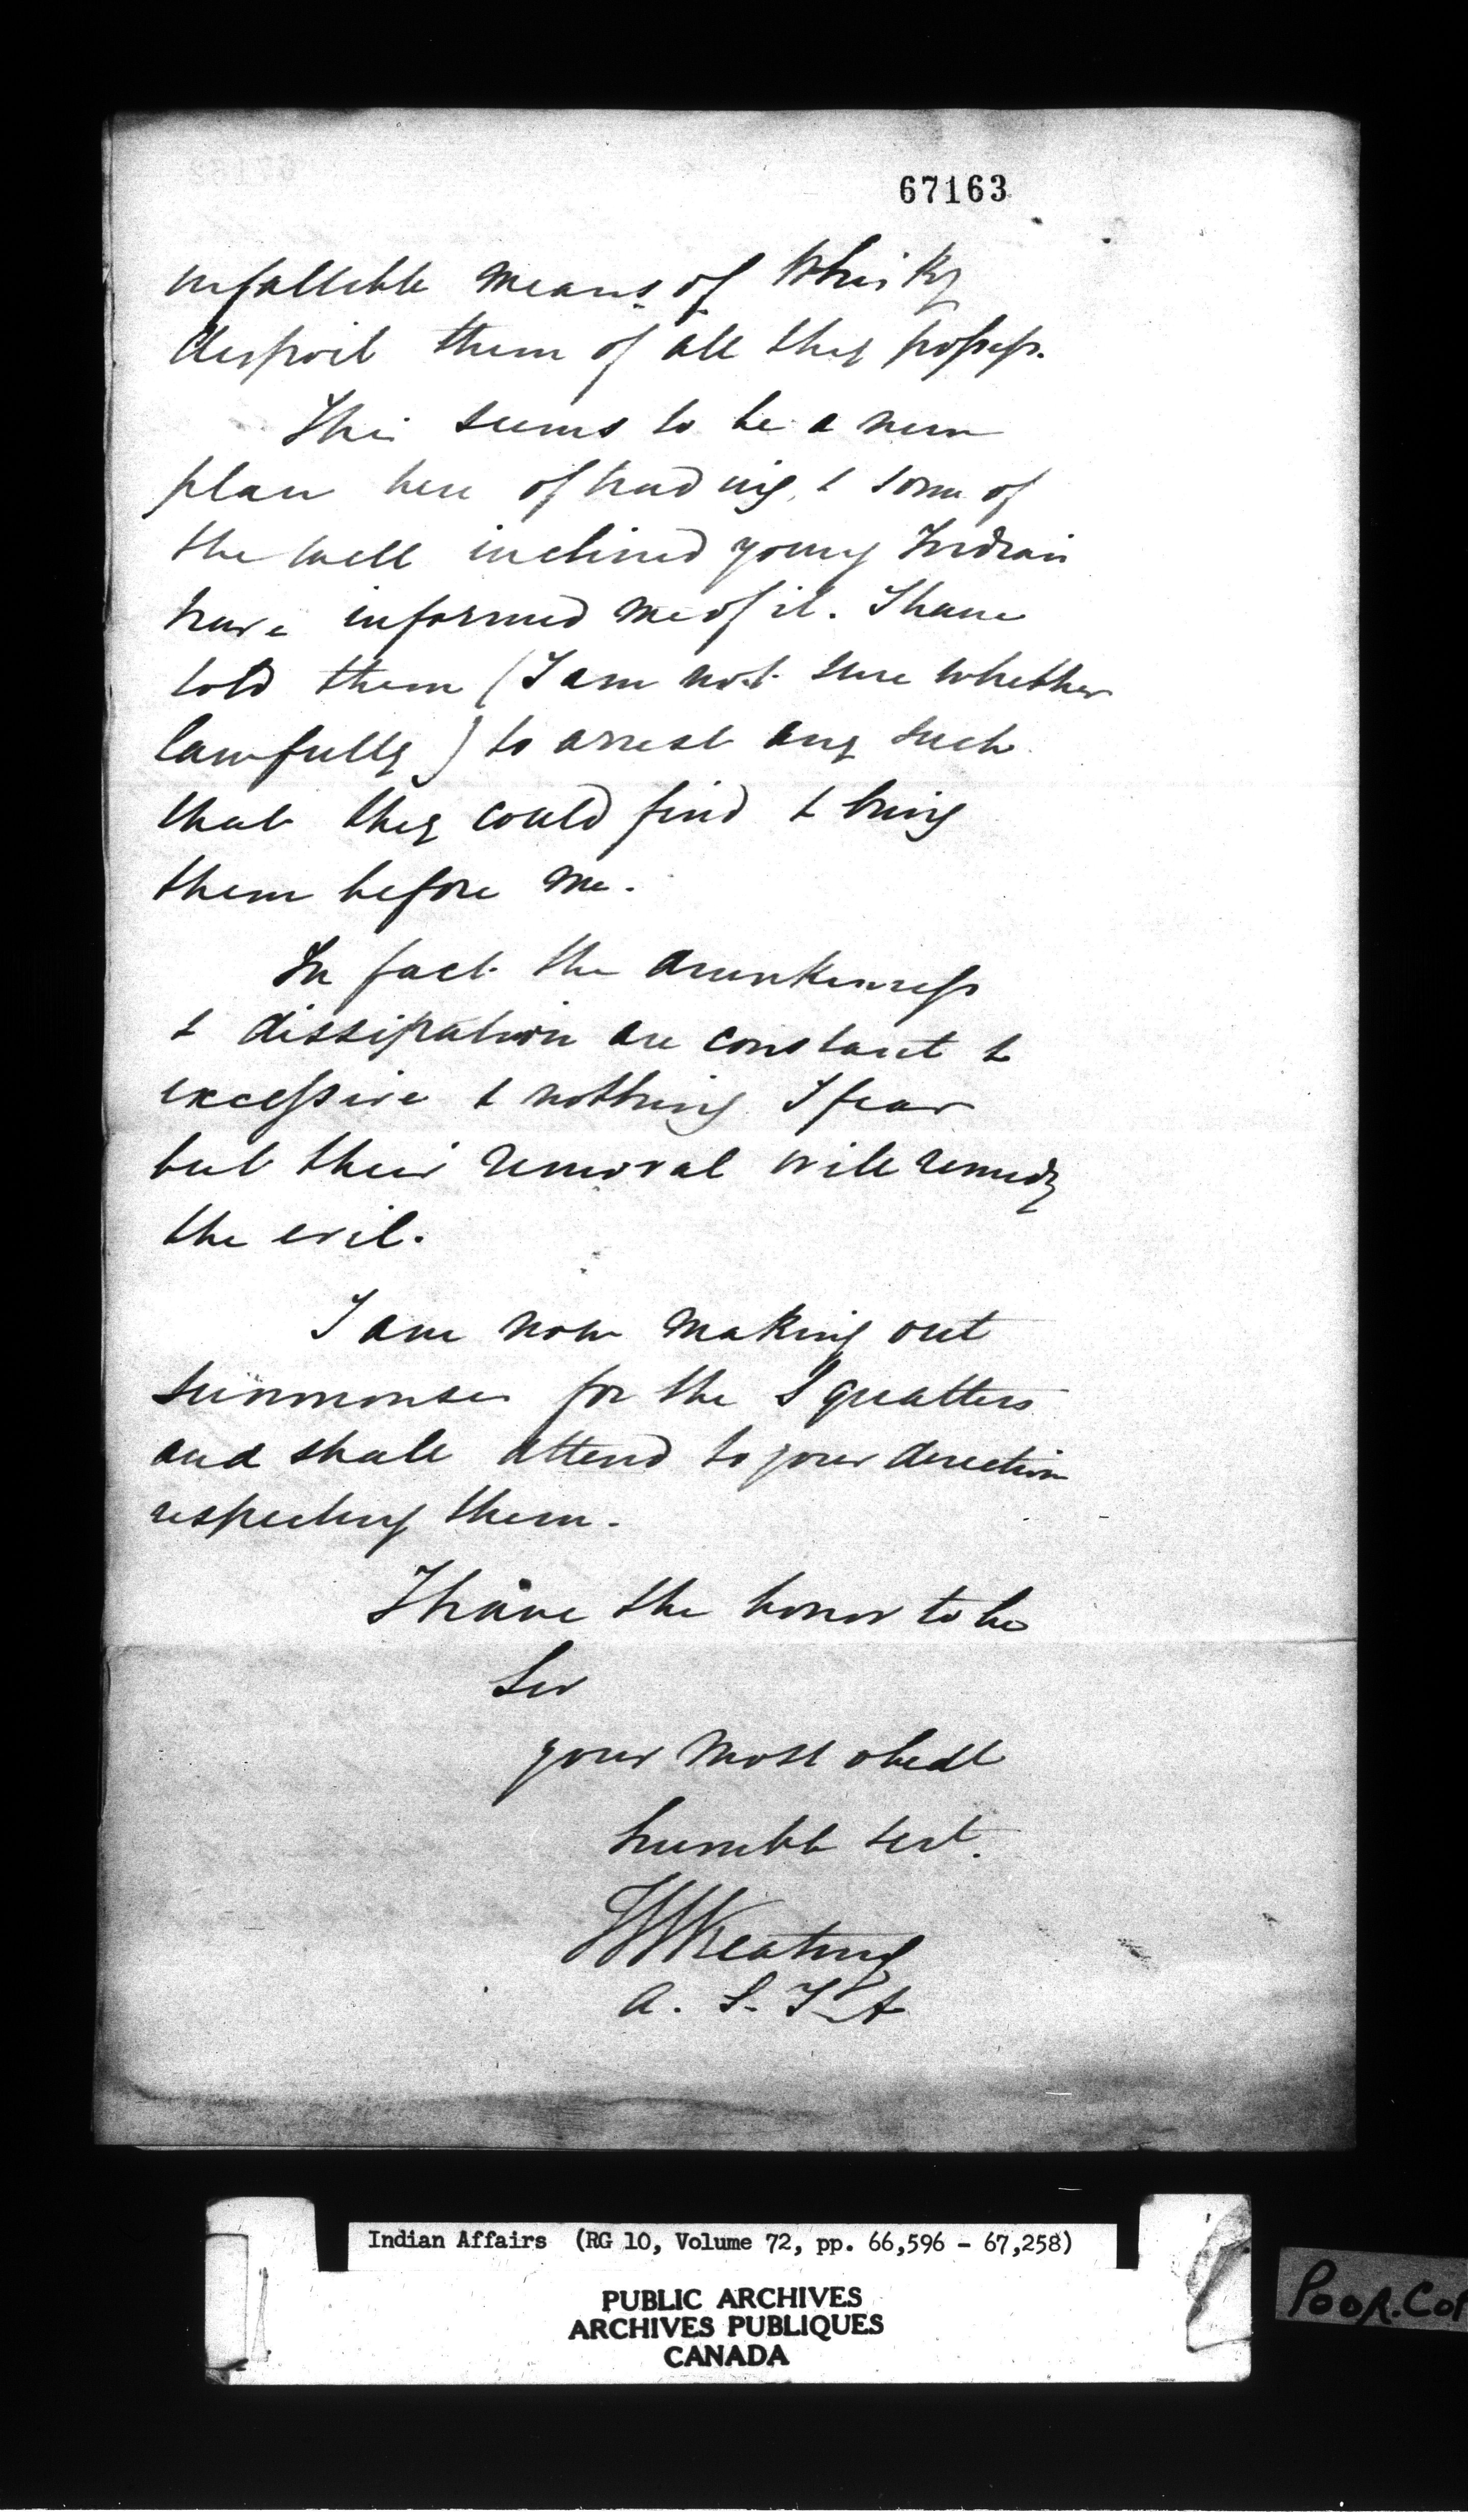 67163
infallible means of Whisky
despoil them of all they possess.
This seems to be a new
plan here of trading, & some of
the well inclined young Indians
have informed me of it. I have
told them (I am not sure whether
lawfully) to arrest any such
that they could find & bring
them before me.
In fact the drunkenness
& dissipation are constant &
excessive & nothing I fear
but their removal will remedy
the evil.
I am now making out
summonses for the Squatters
and shall attend to your direction
respecting them.
I have the honor to be
Sir
your most obedt
humble sert.
JWKeating
A. S. I. A
Indian Affairs (RG 10, Volume 72, pp. 66,596 - 67,258)
PUBLIC ARCHIVES
ARCHIVES PUBLIQUES
CANADA
POOR.COP